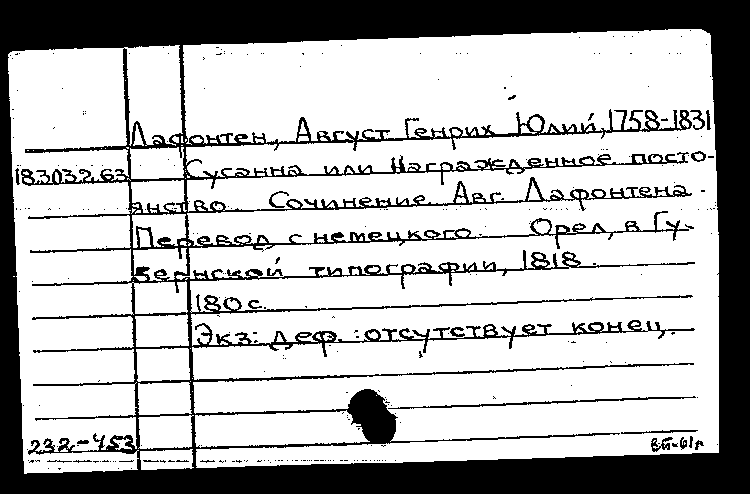 Лафонтен, Август Генрих Юлий, 1758-1831
18.3032.63 Сусанна или Награжденное посто-
янство. Сочинение Авг. Лафонтена.
Перевод с немецкого. Орел, в Гу-
бернской типографии, 1818.
180 с.
Экз: деф.: отсутствует конец.
232-453